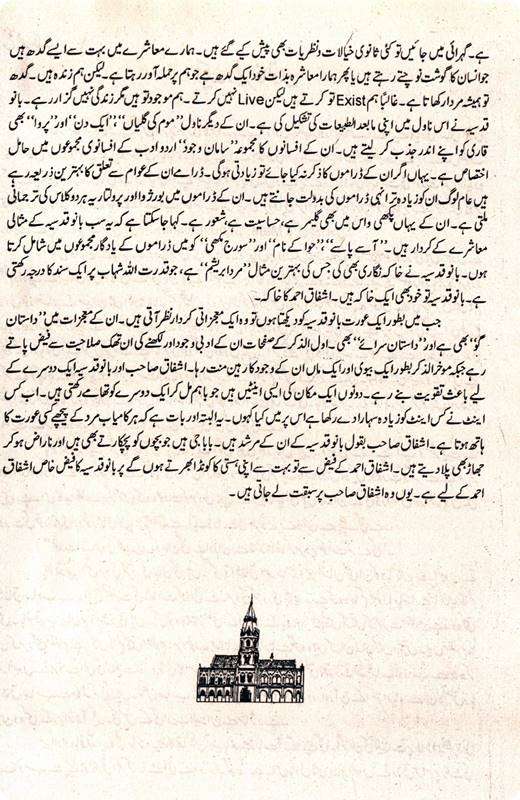 ہے۔ گہرائی میں جائیں تو کئی ثانوی خیالات و نظریات بھی پیش کیے گئے ہیں۔ ہمارے معاشرے میں بہت سے ایسے گدھ ہیں
جو انسان کا گوشت نوچتے رہتے ہیں یا پھر ہمارا معاشرہ بذات خود ایک گدھ ہے جو ہم پر حملہ آور رہتا ہے۔ لیکن ہم زندہ ہیں۔ گدھ
تو ہمیشہ مردار کھاتا ہے۔ غالباً ہم Exist تو کرتے ہیں لیکن Live نہیں کرتے۔ ہم موجود تو ہیں مگر زندگی نہیں گزار رہے۔ بانو
قدسیہ نے اس ناول میں اپنی مابعد الطبیعات کی تشکیل کی ہے۔ ان کے دیگر ناول "موم کی گلیاں"، "ایک دن" اور "پروا" بھی
قاری کو اپنے اندر جذب کر لیتے ہیں۔ ان کے افسانوں کا مجموعہ "سامان وجود" اردو ادب کے افسانوی مجموعوں میں حامل
اختصاص ہے۔ یہاں اگر ان کے ڈراموں کا ذکر نہ کیا جائے تو زیادتی ہوگی۔ ڈرامے ان کے عوام سے تعلق کا بہترین ذریعہ رہے
ہیں عام لوگ ان کو زیادہ تر انہی ڈراموں کی بدولت جانتے ہیں۔ ان کے ڈراموں میں بورژوا اور پرولتاریہ ہر دو کلاس کی ترجمانی
ملتی ہے۔ ان کے یہاں پگھی واس میں بھی گلیمر ہے، حساسیت ہے، شعور ہے۔ کہا جا سکتا ہے کہ یہ سب بانو قدسیہ کے مثالی
معاشرے کے کردار ہیں۔ "آسے پاسے"، "حوا کے نام" اور "سورج مکھی" کو میں ڈراموں کے یادگار مجموعوں میں شامل کرتا
ہوں۔ بانو قدسیہ نے خاکہ نگاری بھی کی جس کی بہترین مثال "مرد ابریشم" ہے، جو قدرت اللہ شہاب پر ایک سند کا درجہ رکھتی
ہے۔ بانو قدسیہ تو خود بھی ایک خاکہ ہیں۔ اشفاق احمد کا خاکہ۔
جب میں بطور ایک عورت بانو قدسیہ کو دیکھتا ہوں تو وہ ایک معجزاتی کردار نظر آتی ہیں۔ ان کے معجزات میں "داستان
گو" بھی ہے اور "داستان سرائے" بھی۔ اول الذکر کے صفحات ان کے ادبی وجود اور لکھنے کی ان تھک صلاحیت سے فیض پاتے
رہے جبکہ موخر الذکر بطور ایک بیوی اور ایک ماں ان کے وجود کا رہین منت رہا۔ اشفاق صاحب اور بانو قدسیہ ایک دوسرے کے
لیے باعث تقویت بنے رہے۔ دونوں ایک مکان کی ایسی اینٹیں ہیں جو باہم مل کر ایک دوسرے کو تھامے رکھتی ہیں۔ اب کس
اینٹ نے کس اینٹ کو زیادہ سہارا دے رکھا ہے اس پر میں کیا کہوں۔ یہ البتہ اور بات ہے کہ ہر کامیاب مرد کے پیچھے کسی عورت کا
ہاتھ ہوتا ہے۔ اشفاق صاحب بقول بانو قدسیہ کے ان کے مرشد ہیں۔ بابا جی ہیں جو بچوں کو پچکارتے بھی ہیں اور ناراض ہو کر
جھاڑ بھی پلا دیتے ہیں۔ اشفاق احمد کے فیض سے تو بہت سے اپنی ہستی کا کونڈا بھرتے ہوں گے پر بانو قدسیہ کا فیض خاص اشفاق
احمد کے لیے ہے۔ یوں وہ اشفاق صاحب پر سبقت لے جاتی ہیں۔